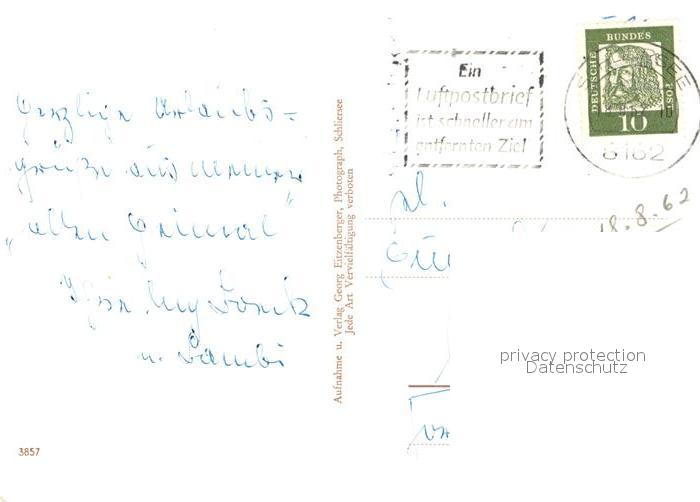 Herzliche Urlaubs=
grüße aus meiner
"alten Heimat"
u. Bambi
3857
Aufnahme u. Verlag Georg Eitzenberger, Photograph, Schliersee
Jede Art Vervielfältigung verboten
Ein
Luftpostbrief
ist schneller am
entfernten Ziel
DEUTSCHE BUNDESPOST
10
8162
18.8.62
privacy protection
Datenschutz